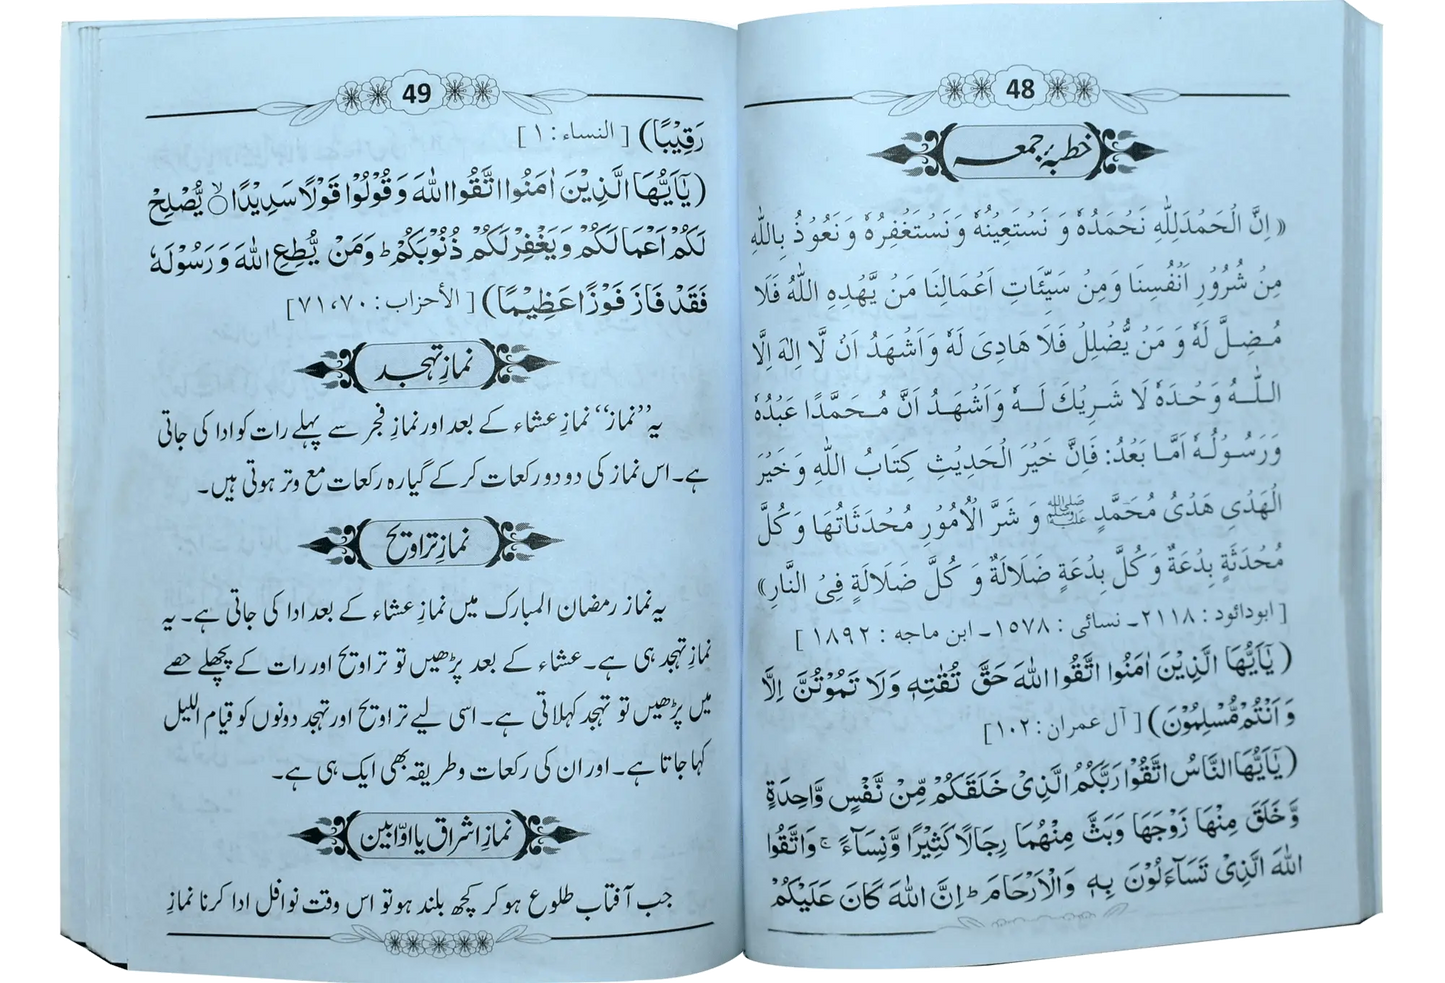 48
خطبۂ جمعہ
«اِنَّ الْحَمْدَلِلّٰهِ نَحْمَدُهٗ وَ نَسْتَعِيْنُهٗ وَنَسْتَغْفِرُهٗ وَنَعُوْذُ بِاللّٰهِ
مِنْ شُرُوْرِ اَنْفُسِنَا وَمِنْ سَيِّئَاتِ اَعْمَالِنَا مَنْ يَّهْدِهِ اللّٰهُ فَلَا
مُضِلَّ لَهٗ وَ مَنْ يُّضْلِلْ فَلَا هَادِىَ لَهٗ وَاَشْهَدُ اَنْ لَّا اِلٰهَ اِلَّا
اللّٰهُ وَحْدَهٗ لَا شَرِيْكَ لَهٗ وَاَشْهَدُ اَنَّ مُحَمَّدًا عَبْدُهٗ
وَرَسُوْلُهٗ اَمَّا بَعْدُ: فَاِنَّ خَيْرَ الْحَدِيْثِ كِتَابُ اللّٰهِ وَخَيْرَ
الْهَدْىِ هَدْىُ مُحَمَّدٍ ﷺ وَ شَرَّ الْاُمُوْرِ مُحْدَثَاتُهَا وَكُلَّ
مُحْدَثَةٍ بِدْعَةٌ وَكُلَّ بِدْعَةٍ ضَلَالَةٌ وَ كُلَّ ضَلَالَةٍ فِىْ النَّارِ»
[ابودائود : ٢١١٨۔ نسائی : ١٥٧٨۔ ابن ماجه : ١٨٩٢]
(يٰٓاَيُّهَا الَّذِيْنَ اٰمَنُوا اتَّقُوا اللّٰهَ حَقَّ تُقٰتِهٖ وَلَا تَمُوْتُنَّ اِلَّا
وَاَنْتُمْ مُّسْلِمُوْنَ) [آل عمران : ١٠٢]
(يٰٓاَيُّهَا النَّاسُ اتَّقُوْا رَبَّكُمُ الَّذِىْ خَلَقَكُمْ مِّنْ نَّفْسٍ وَّاحِدَةٍ
وَّخَلَقَ مِنْهَا زَوْجَهَا وَبَثَّ مِنْهُمَا رِجَالًا كَثِيْرًا وَّنِسَآءً ۚ وَاتَّقُوا
اللّٰهَ الَّذِىْ تَسَآءَلُوْنَ بِهٖ وَالْاَرْحَامَ ؕ اِنَّ اللّٰهَ كَانَ عَلَيْكُمْ
49
رَقِيْبًا) [النساء : ١]
(يٰٓاَيُّهَا الَّذِيْنَ اٰمَنُوا اتَّقُوا اللّٰهَ وَقُوْلُوْا قَوْلًا سَدِيْدًا ۙ يُّصْلِحْ
لَكُمْ اَعْمَالَكُمْ وَيَغْفِرْلَكُمْ ذُنُوْبَكُمْ ؕ وَمَنْ يُّطِعِ اللّٰهَ وَرَسُوْلَهٗ
فَقَدْ فَازَ فَوْزًا عَظِيْمًا) [الأحزاب : ٧٠،٧١]
نمازِ تہجد
یہ ”نماز“ نمازِ عشاء کے بعد اور نمازِ فجر سے پہلے رات کو ادا کی جاتی
ہے۔ اس نماز کی دو دو رکعات کر کے گیارہ رکعات مع وتر ہوتی ہیں۔
نمازِ تراویح
یہ نماز رمضان المبارک میں نمازِ عشاء کے بعد ادا کی جاتی ہے۔ یہ
نمازِ تہجد ہی ہے۔ عشاء کے بعد پڑھیں تو تراویح اور رات کے پچھلے حصے
میں پڑھیں تو تہجد کہلاتی ہے۔ اسی لیے تراویح اور تہجد دونوں کو قیام اللیل
کہا جاتا ہے۔ اور ان کی رکعات و طریقہ بھی ایک ہی ہے۔
نمازِ اشراق یا اوّابین
جب آفتاب طلوع ہو کر کچھ بلند ہو تو اس وقت نوافل ادا کرنا نمازِ